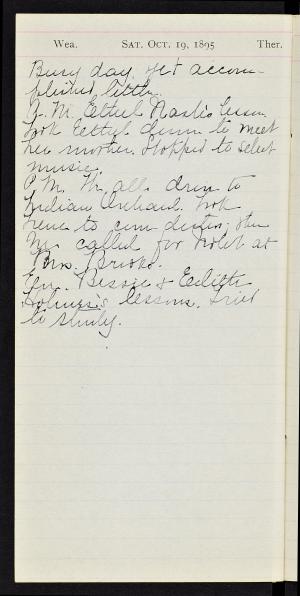 Wea. SAT. OCT. 19, 1895 Ther.
Busy day, yet accom-
plished little.
A.M. Ethel Nash's lesson
Took Ethel down to meet
her mother. Stopped to select
music.
P.M. We all drove to
Indian Orchard. Took
Irene to
We called for Violet at
Mrs. Brooks.
Eve. Bessie & Edith
Holmes's lessons. Tried
to study.